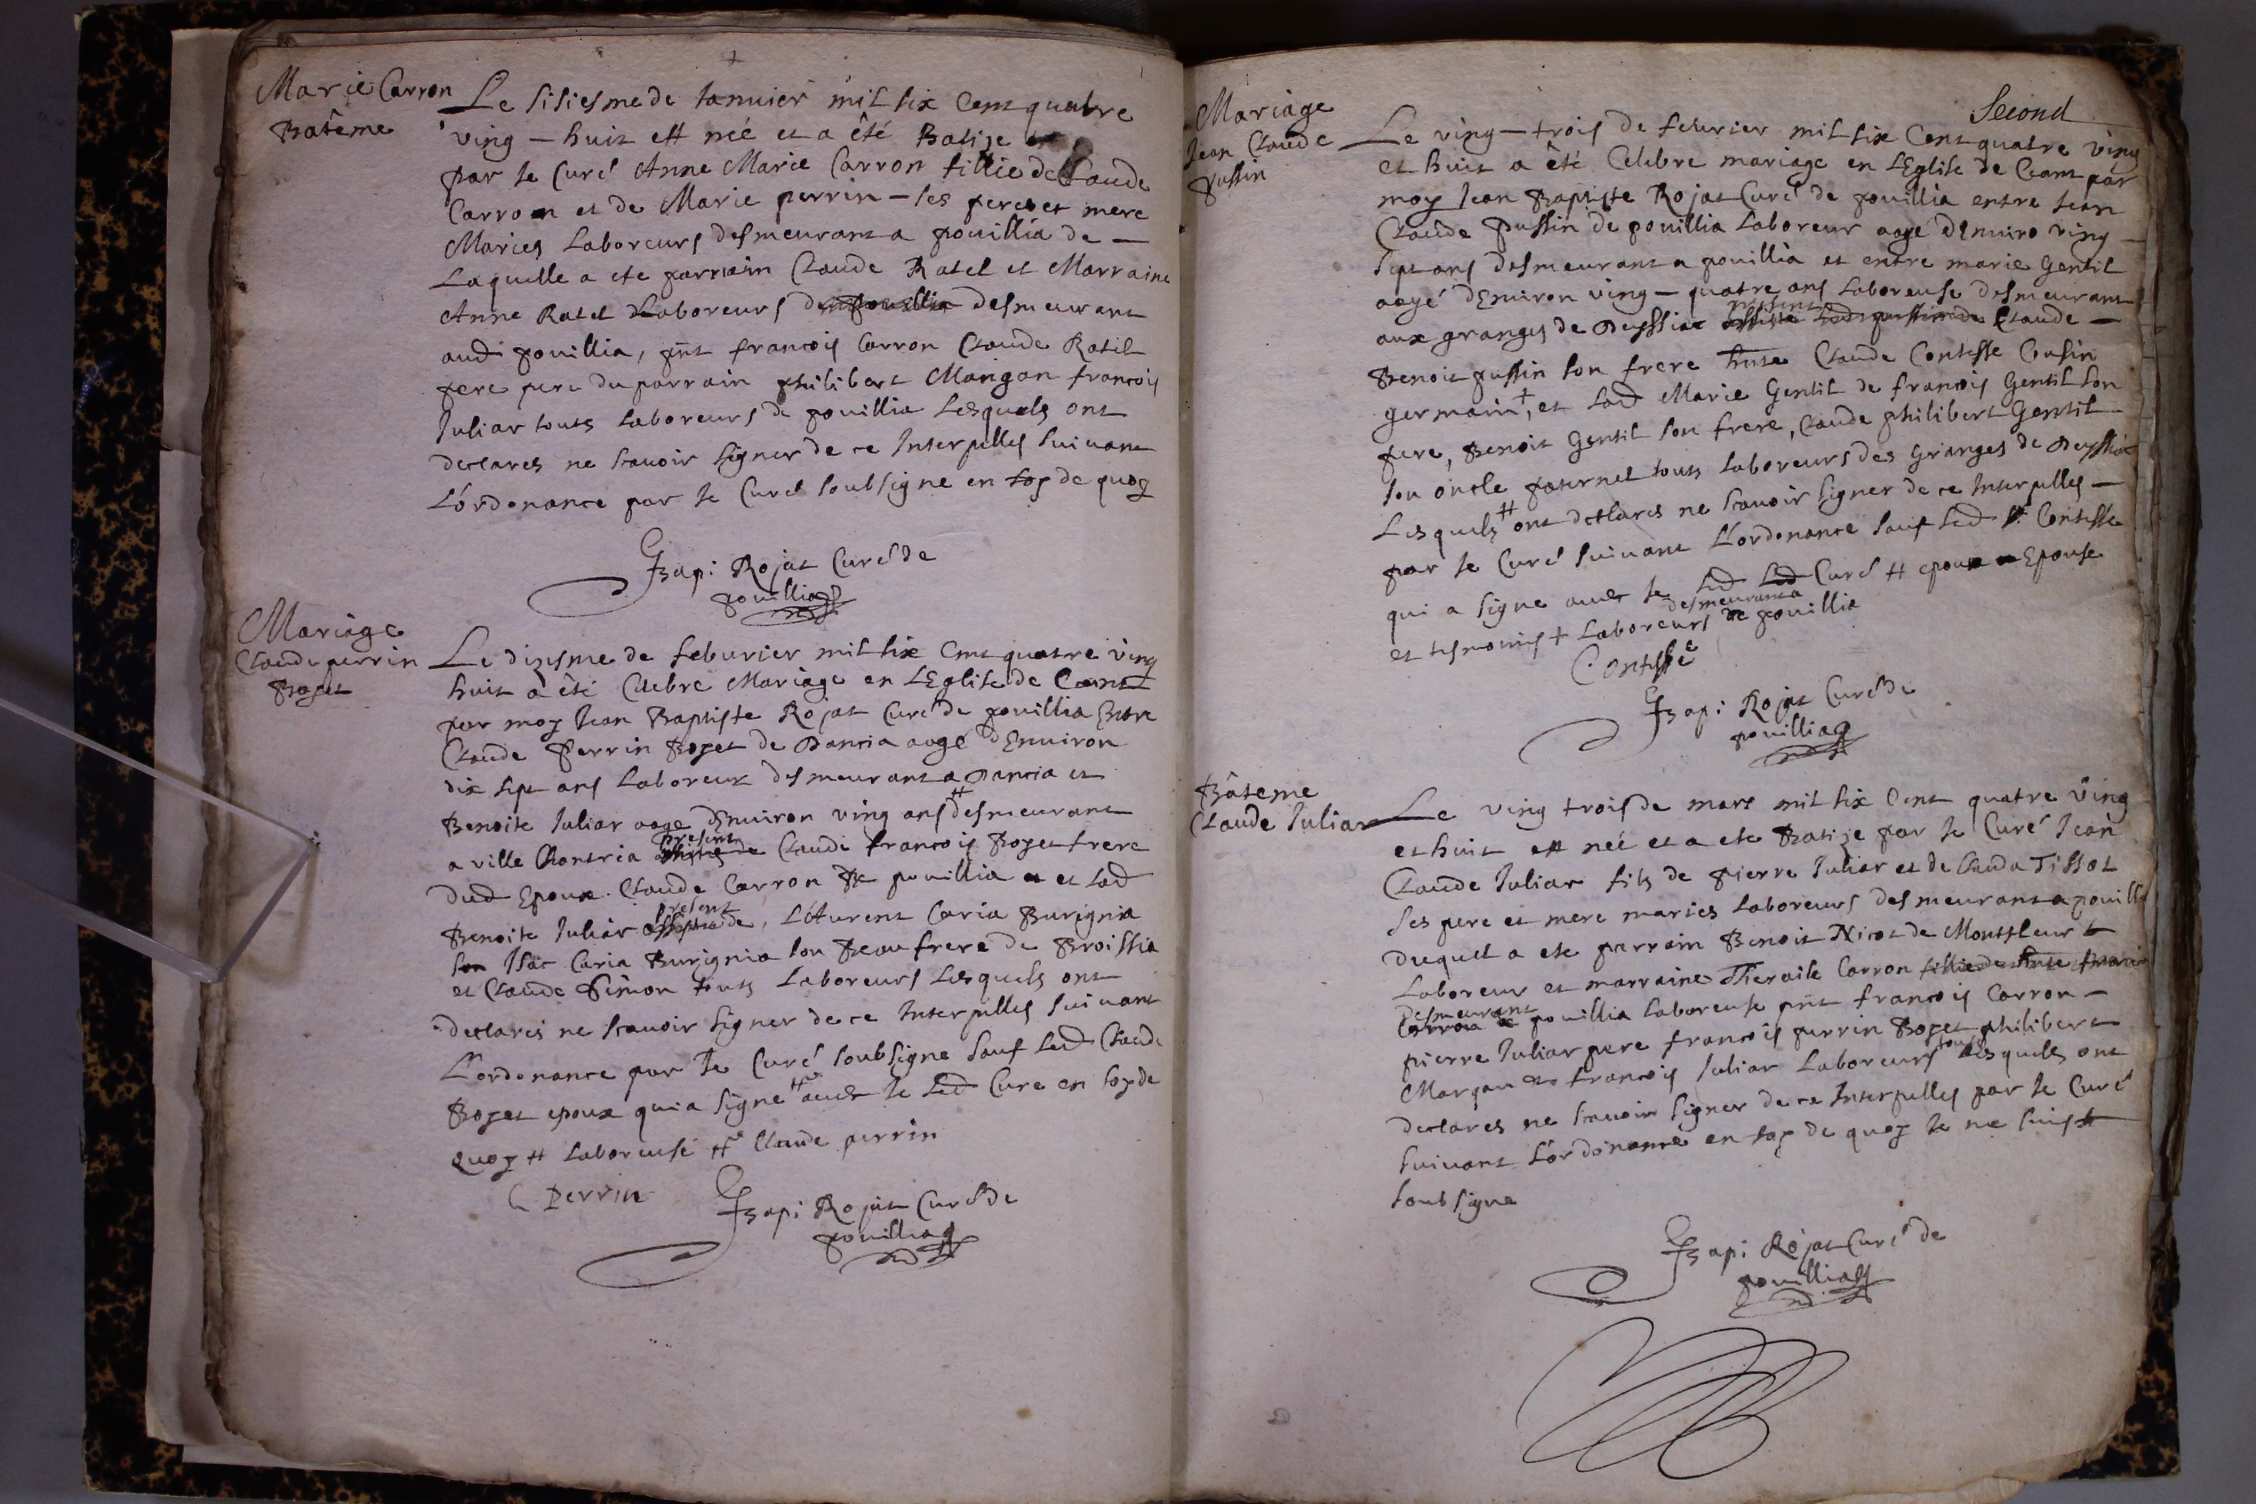 Marie Carron
Batême
Le sisiesme de Januier mil six Cent quatre
ving – huit est née et a êté Batise
par le Curé Anne Marie Carron fillie de Claude
Carron et de Marie perrin – ses pere et mere
Maries Laboreurs desmeurant a pouillia de –
Laquelle a ete parrain Claude Ratel et Marraine
Anne Ratel Laboreurs de pouillia desmeurant
aud pouillia, pnt francois Carron Claude Ratel
pere du parrain philibert Mangan francois
Juliar touts laboreurs de pouillia Lesquels ont
declares ne scauoir signer de ce Interpelles suiuant
L'ordonance par le Curé soubsigne en foy de quoy
JBapi Rojat Curé de
pouillia
Mariage
Claude perrin
Boget
Le diesme de feburier mil six Cent quatre ving
huit a êté Celebre Mariage en L'Eglise de Ceant
par moy Jean Baptiste Rojat Curé de pouillia Entre
Claude Perrin Boget de Dancia aagé d'Enuiron
dix sept ans Laboreur desmeurant a Dancia et
Benoite Juliar aage d'Enuiron ving ans # desmeurant
a ville Chantria present Claude francois Boget frere
dud Epoux. Claude Carron de pouillia et lad
Benoite Juliar present, L'Aurent Caria Burignia
Isac Caria Burignia son Beaufrere de Broissia
et Claude Simon touts Laboreurs Lesquels ont
declares ne scauoir signer de ce Interpelles suiuant
L'ordonance par le Curé soubsigne sauf led Claude
Boget epoux qui a signe # auec le led Cure en foy de
quoy # laboreuse # Claude perrin
C Perrin
JBapi Rojat Curé de
pouillia
Second
Mariage
Jean Claude
pussin
Le ving – trois de feburier mil six Cent quatre ving
et huit a êté Celebre mariage en L'Eglise de Ceant par
moy Jean Baptiste Rojat Curé de pouillia entre Jean
Claude Pussin de pouillia Laboreur aagé d'Enuiro ving –
sept ans desmeurant a pouillia et entre marie Gentil
aagé d'Enuiron ving – quatre ans Laboreuse desmeurant
aux granges de Deyssia present Claude –
Benoit pussin son frere Claude Contesse Cousin
germain +, et lad Marie Gentil de francois Gentil son
pere, Benoit Gentil son frere, Claude philibert Gentil
son oncle paternel touts laboreurs des Granges de Deyssia
Lesquels # ont declares ne scauoir signer de ce Interpelles –
par le Curé suiuant L'ordonance sauf led Contesse
qui a signe auec le led Curé # epoux Epouse
et tesmoins + Laboreurs desmeurant a pouillia
Contesse
JBapi Rojat Curé de
pouillia
Bateme
Claude Juliar
Le ving trois de mars mil six Cent quatre ving
et huit est née et a ete Batise par le Curé Jean
Claude Juliar fils de Pierre Juliar et de Clauda Tissot
Ses pere et mere maries laboreurs desmeurant a pouillia
Duquel a ete parrain Benoit Nicot de Montfleur
Laboreur et marraine Carron
Desmeurant pouillia Laboreuse pnt francois Carron –
pierre Juliar pere francois perrin Boget philibert
Mangan francois Juliar Laboreurs touts Lesquels ont
declares ne scauoir signer de ce Interpelles par le Curé
suiuant L'ordonance en foy de quoy Je me suis
soubsigne
JBapi Rojat Curé de
pouillia